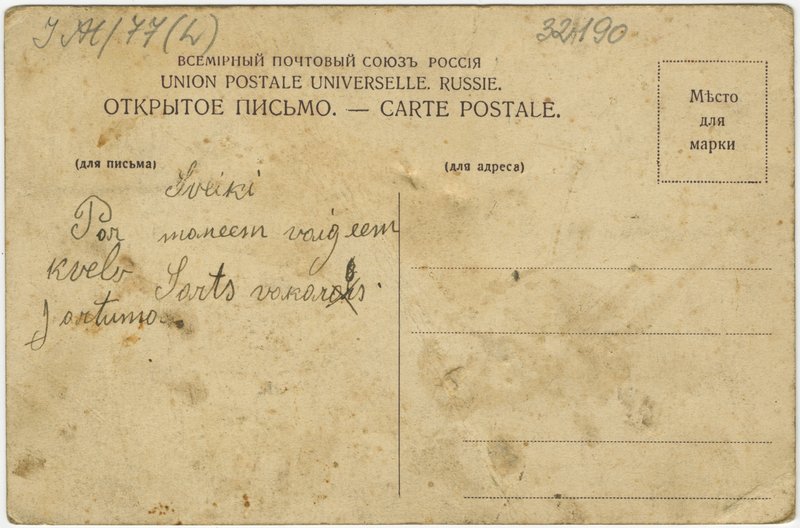 J AH/77(L)
32190
ВСЕМІРНЫЙ ПОЧТОВЫЙ СОЮЗЪ РОССІЯ
UNION POSTALE UNIVERSELLE. RUSSIE.
ОТКРЫТОЕ ПИСЬМО. — CARTE POSTALE.
Мѣсто
для
марки
(для письма)
(для адреса)
Sveiki
Par maneem vaigeem
kvelo Sarts vakara
sartums